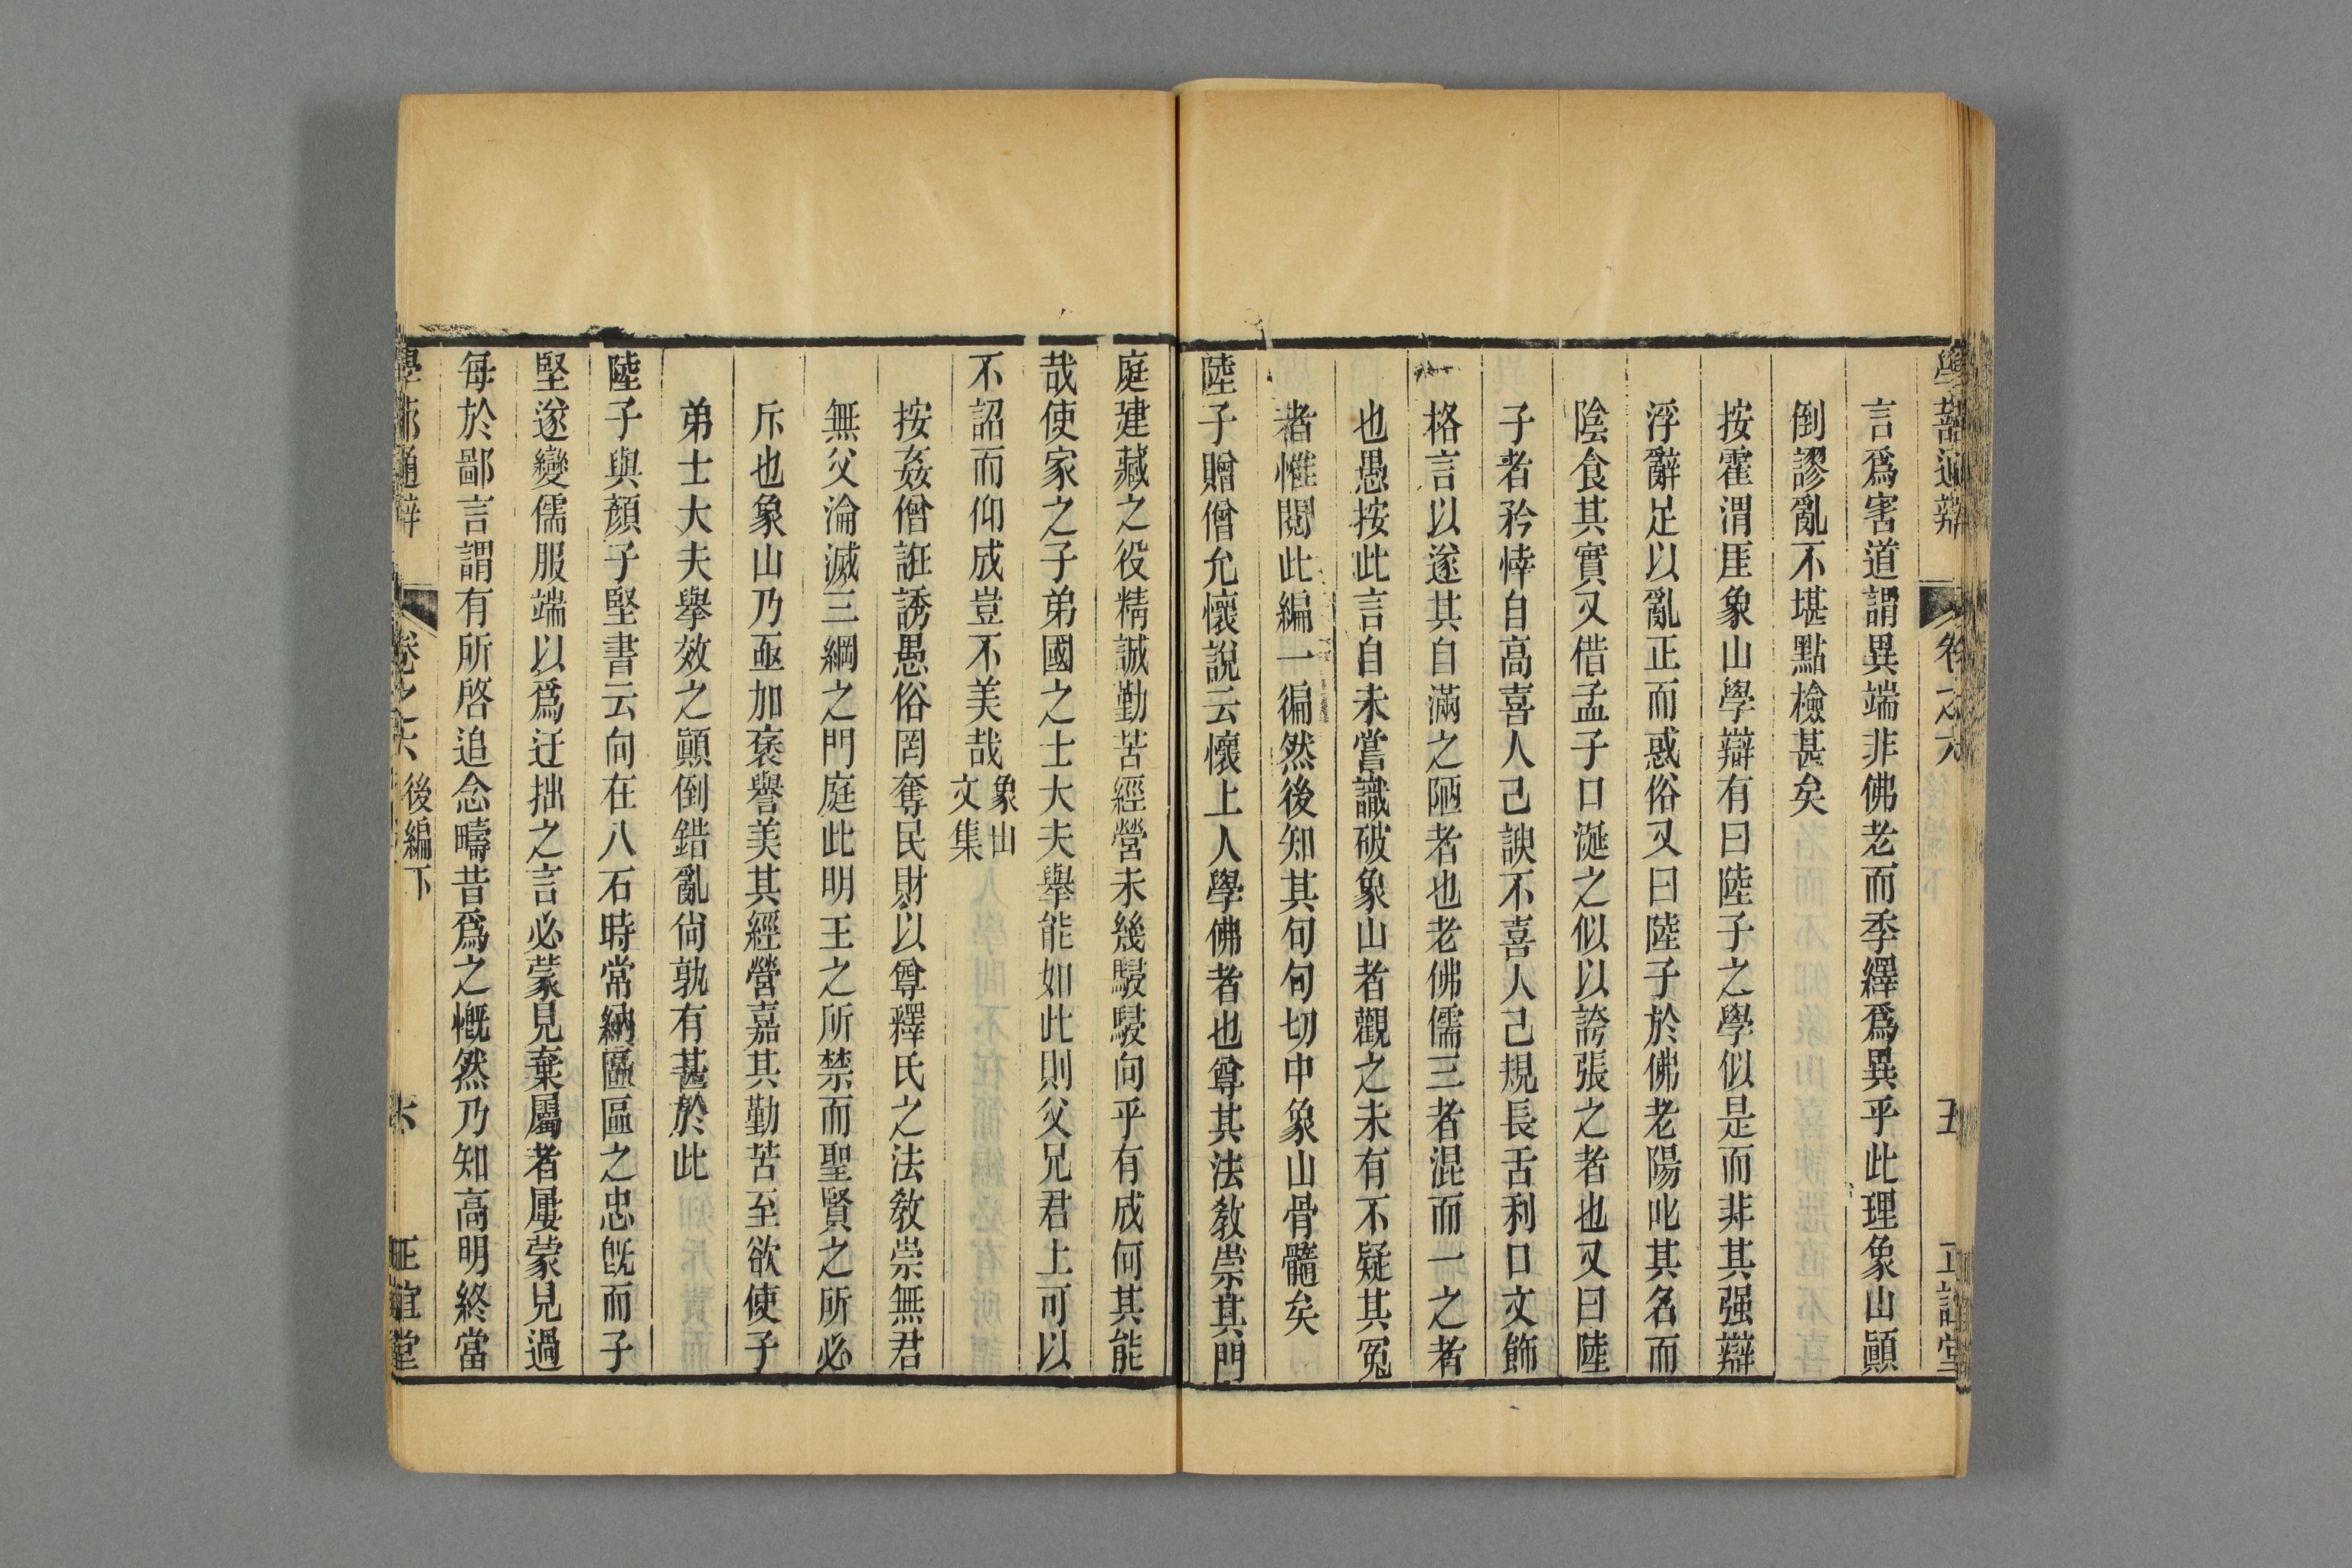 學蔀通辯 卷之六 五 正誼堂
言爲害道謂異端非佛老而季繹爲異乎此理象山顚
倒謬亂不堪點檢甚矣
按霍渭厓象山學辯有曰陸子之學似是而非其强辯
浮辭足以亂正而惑俗又曰陸子於佛老陽叱其名而
陰食其實又借孟子口涎之似以誇張之者也又曰陸
子者矜悻自高喜人己諛不喜人己規長舌利口文飾
格言以遂其自滿之陋者也老佛儒三者混而一之者
也愚按此言自未嘗識破象山者觀之未有不疑其冤
者惟閱此編一徧然後知其句句切中象山骨髓矣
陸子贈僧允懷說云懷上人學佛者也尊其法教崇其門
庭建藏之役精誠勤苦經營未幾駸駸向乎有成何其能
哉使家之子弟國之士大夫舉能如此則父兄君上可以
不詔而仰成豈不美哉 象山文集
按姦僧誑誘愚俗罔奪民財以尊釋氏之法教崇無君
無父淪滅三綱之門庭此明王之所禁而聖賢之所必
斥也象山乃亟加褒譽美其經營嘉其勤苦至欲使子
弟士大夫舉效之顚倒錯亂尙孰有甚於此
陸子與顏子堅書云向在八石時常納區區之忠旣而子
堅遂變儒服端以爲迂拙之言必蒙見棄屬者屢蒙見過
每於鄙言謂有所啓追念疇昔爲之慨然乃知高明終當
學蔀通辯 卷之六 後編下 六 正誼堂